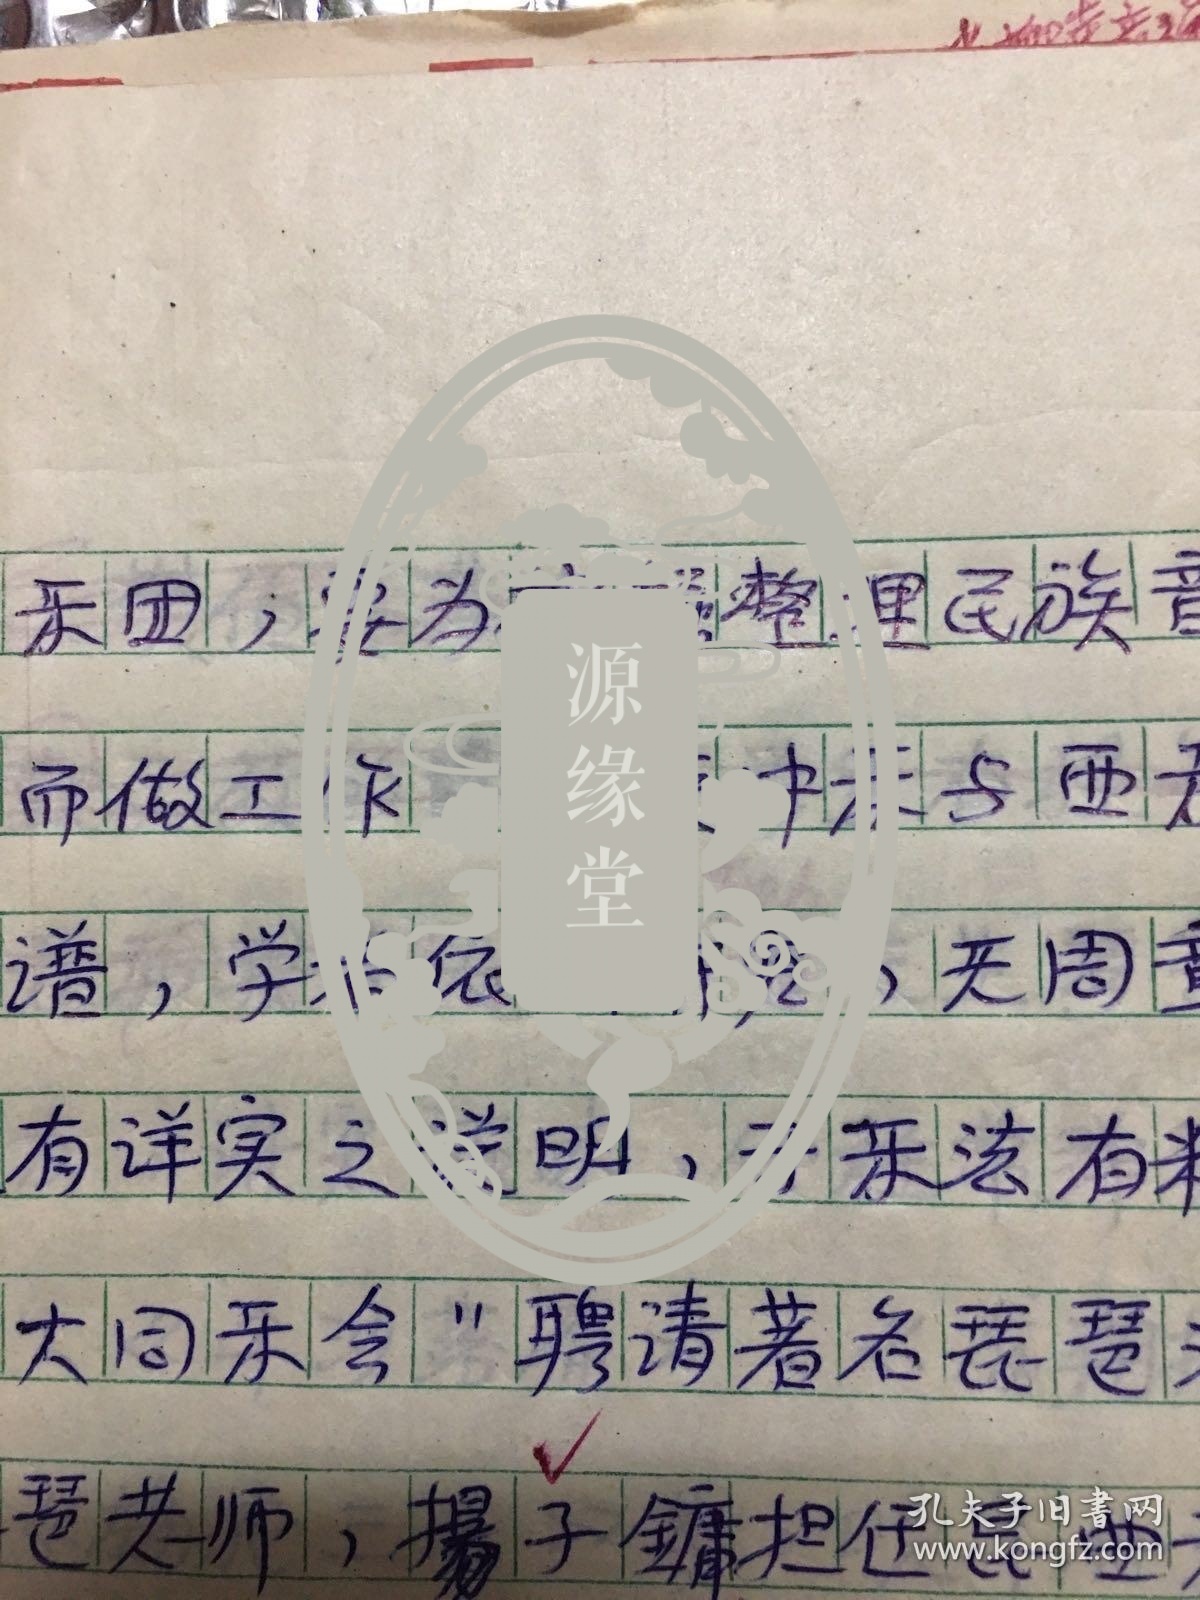 乐团，要为整理民族音
而做工作中乐与西
谱，学者依，无周章
有详实之说明，于乐法有
大同乐会"聘请著名琵琶
琶老师，杨子镛担任民
源缘堂
孔夫子旧书网
www.kongfz.com